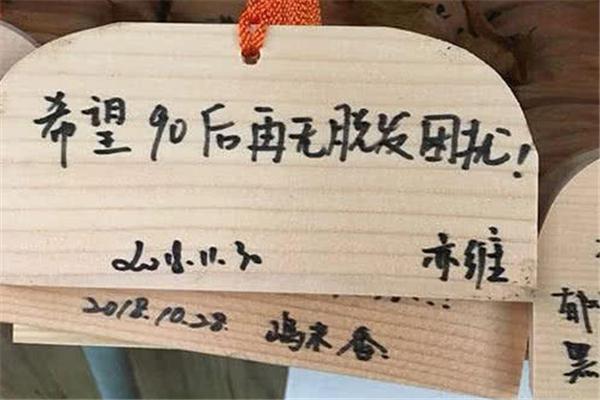 希望90后再无脱发困扰!
2018.11.30 亦维
2018.10.28.
郁
黑